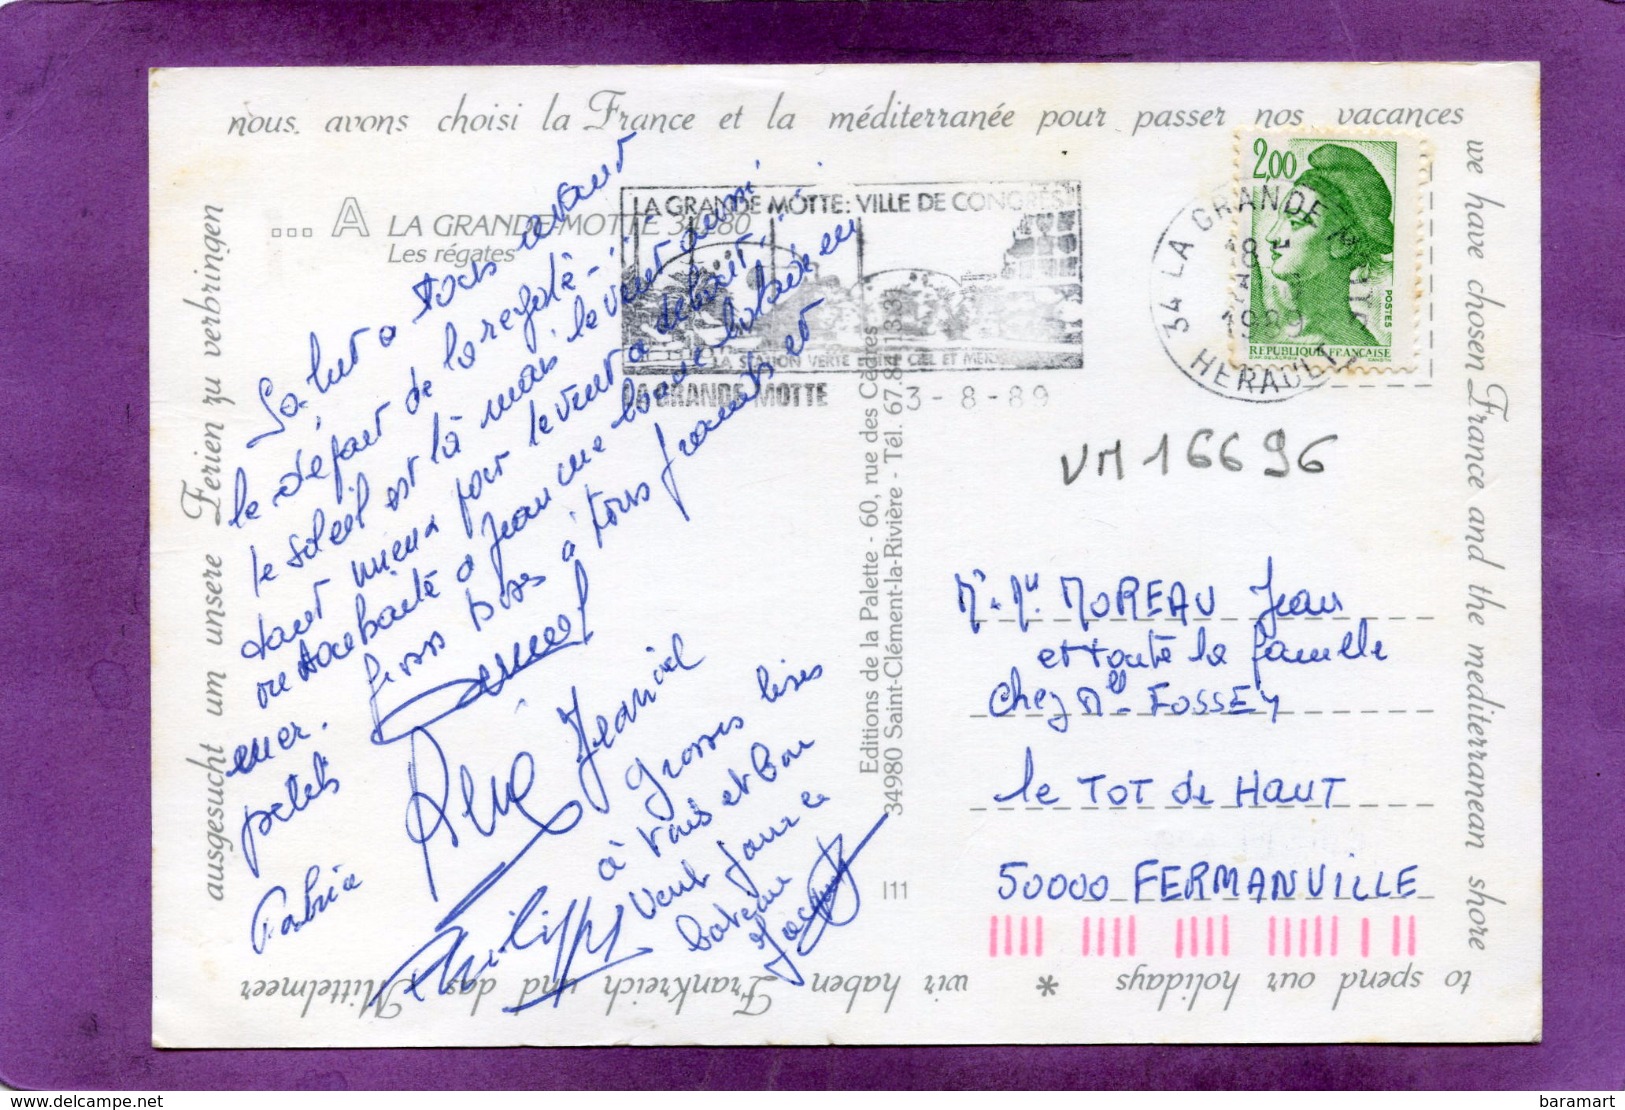 nous avons choisi la France et la méditerranée pour passer nos vacances
we have chosen France and the mediterranean shore
to spend our holidays * wir haben
Frankreich und das Mittelmeer
ausgesucht um unsere Ferien zu verbringen
... A LA GRANDE MOTTE 34280
Les régates
LA GRANDE MOTTE: VILLE DE CONGRES
LA STATION VERTE ENTRE CIEL ET MER
LA GRANDE MOTTE 3-8-89
34 LA GRANDE MOTTE
18 H
1989
HERAULT
2,00
POSTES
REPUBLIQUE FRANÇAISE
Salut a tous avant
le départ de la regate
le soleil est là mais le vent aussi
tant mieux pour le vent a debout,
on souhaite a Jean une bonne
mer. gros bises à tous grands et
petits
Daniel
René
Jeanine
Fabrice
Philippe
grosses bises
à tous et bon
vent pour le
bateau
Editions de la Palette - 60, rue des Cèdres
34980 Saint-Clément-la-Rivière - Tél. 67.84.13.37
I11
VM 16696
Mr. Me. MOREAU Jean
et toute la famille
Chez Mll FOSSEY
le TOT de HAUT
50000 FERMANVILLE
delcampe.net
baramart